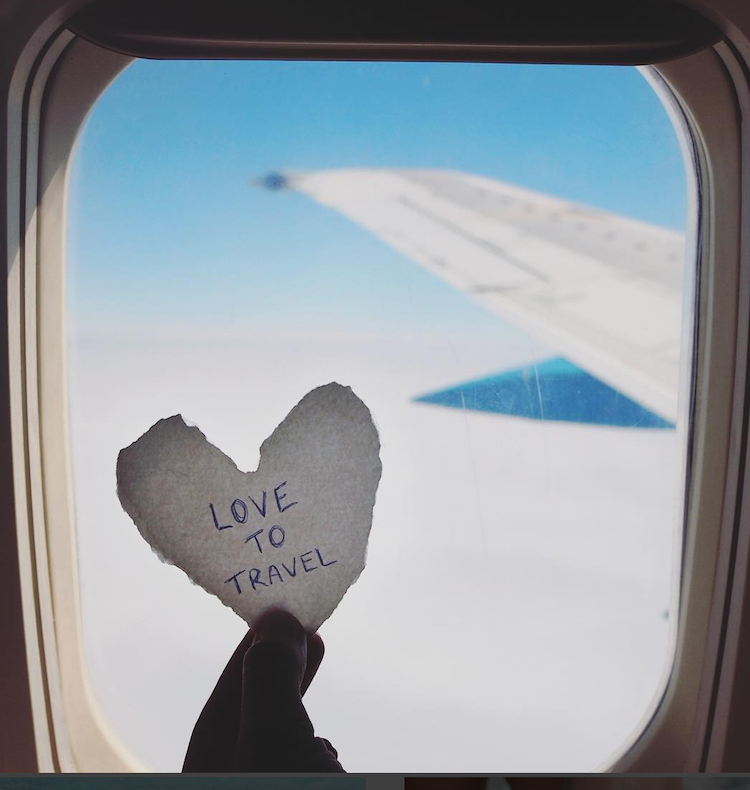 LOVE
TO
TRAVEL